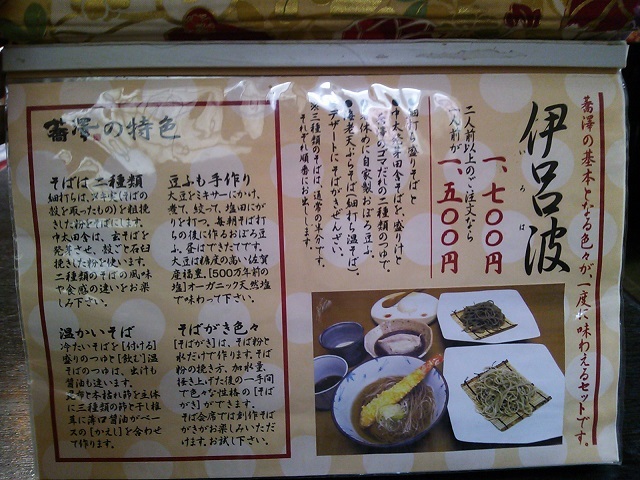 蕎澤の基本となる色々が、一度に味わえるセットです。
伊呂波
いろは
一、七〇〇円
二人前以上のご注文なら
一人前が
一、五〇〇円
細打ち盛りそばと
中太玄芽田舎そばを、盛り汁と
ゴマだれの二種類のつゆで。
休めに自家製おぼろ豆ふ、
海老天ぷらそば(細打ち温そば)、
デザートにそばがきぜんざい。
三種類のそばは、通常の半分です。
それぞれ順番にお出しします。
蕎澤の特色
そばは二種類
細打ちは、ヌキ(そばの
殻を取ったもの)を粗挽
きした粉で
中太田舎は、玄そばを
発芽させ、殻ごと石臼
挽きした粉を使います。
二種類のそばの風味
や食感の違いをお楽
しみ下さい。
豆ふも手作り
大豆をミキサーにかけ、
煮て、絞って、塩田にが
りを打つ。毎朝そば打
ちの後に作るおぼろ豆
ふ、昼はできたてです。
大豆は糖度の高い佐賀
産福豊。[500万年前の
塩]オーガニック天然塩
で味わって下さい。
温かいそば
冷たいそばを[付ける]
盛りのつゆと[飲む]温
そばのつゆは、出汁も
醤油も違います。
昆布と本枯れ節を主体
に三種類の節と干し椎
茸に薄口醤油がベー
スの[かえし]を合わせ
て作ります。
そばがき色々
[そばがき]は、そば粉と
水だけで作ります。そば
粉の挽き方、加水量、
掻き上げた後の一手間
で色々な性格の[そば
がき]ができます。
そば会席では創作そば
がきがお楽しみいただ
けます。お試し下さい。